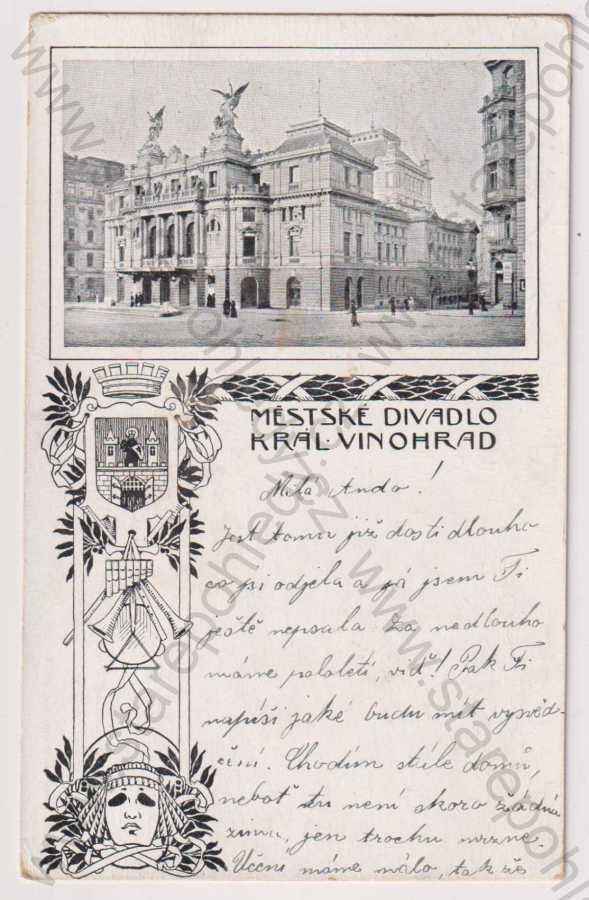 MĚSTSKÉ DIVADLO
KRÁL·VINOHRAD
Milá Ando!
Jest tomu již dosti dlouho
co jsi odjela a já jsem Ti
ještě nepsala. Za nedlouho
máme pololetí, viď! Pak Ti
napíši jaké budu mít vysvěd-
čení. Chodím stále domů,
neboť tu není skoro žádná
zima, jen trochu mrzne.
Učení máme málo, tak že
www.starepohledy.cz